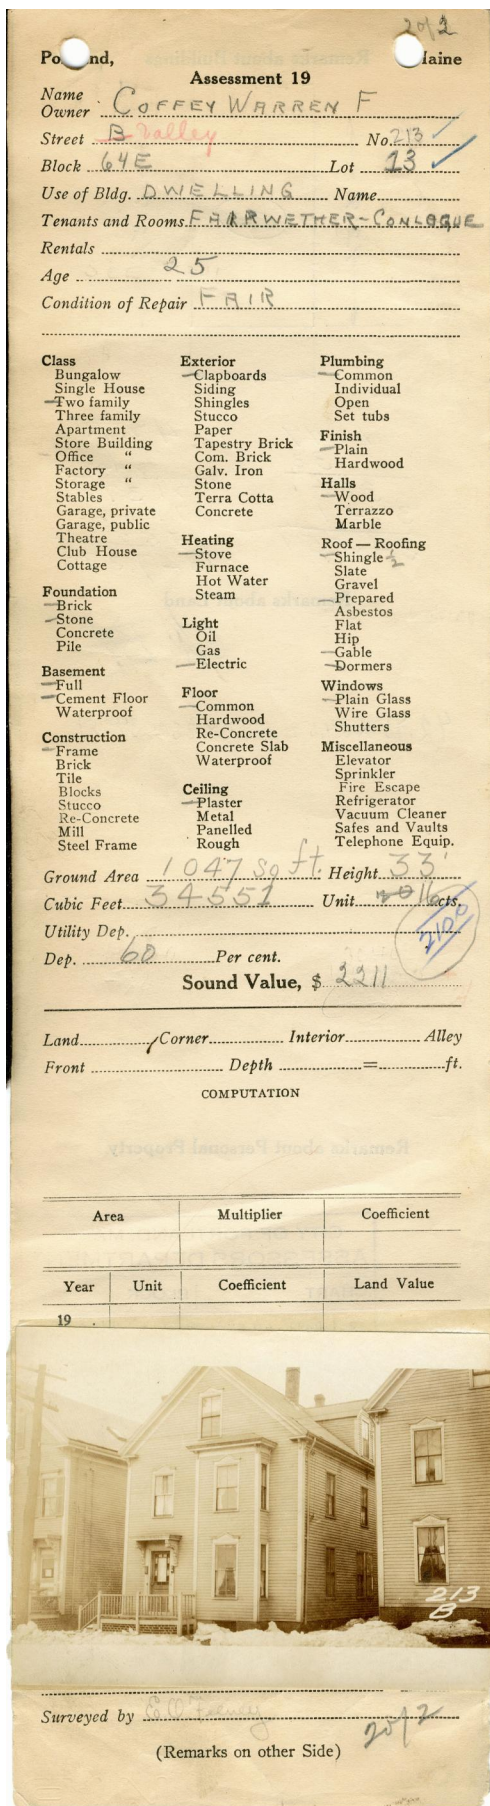 20/2
Po nd, Maine
Assessment 19
Name
Owner COFFEY WARREN F
Street B Valley No. 213
Block 64E Lot 13
Use of Bldg. DWELLING Name
Tenants and Rooms FAIRWETHER-CONLOGUE
Rentals
Age 25
Condition of Repair FAIR
Class
Bungalow
Single House
Two family
Three family
Apartment
Store Building
Office "
Factory "
Storage "
Stables
Garage, private
Garage, public
Theatre
Club House
Cottage
Foundation
Brick
Stone
Concrete
Pile
Basement
Full
Cement Floor
Waterproof
Construction
Frame
Brick
Tile
Blocks
Stucco
Re-Concrete
Mill
Steel Frame
Exterior
Clapboards
Siding
Shingles
Stucco
Paper
Tapestry Brick
Com. Brick
Galv. Iron
Stone
Terra Cotta
Concrete
Heating
Stove
Furnace
Hot Water
Steam
Light
Oil
Gas
Electric
Floor
Common
Hardwood
Re-Concrete
Concrete Slab
Waterproof
Ceiling
Plaster
Metal
Panelled
Rough
Plumbing
Common
Individual
Open
Set tubs
Finish
Plain
Hardwood
Halls
Wood
Terrazzo
Marble
Roof — Roofing
Shingle ½
Slate
Gravel
Prepared
Asbestos
Flat
Hip
Gable
Dormers
Windows
Plain Glass
Wire Glass
Shutters
Miscellaneous
Elevator
Sprinkler
Fire Escape
Refrigerator
Vacuum Cleaner
Safes and Vaults
Telephone Equip.
Ground Area 1047 sq ft. Height 33'
Cubic Feet 34551 Unit 16 cts.
Utility Dep. 2100
Dep. 60 Per cent.
Sound Value, $ 2211
Land Corner Interior Alley
Front Depth = ft.
COMPUTATION
Area Multiplier Coefficient
Year Unit Coefficient Land Value
19
213
B
Surveyed by E.O. Feeney
20/2
(Remarks on other Side)